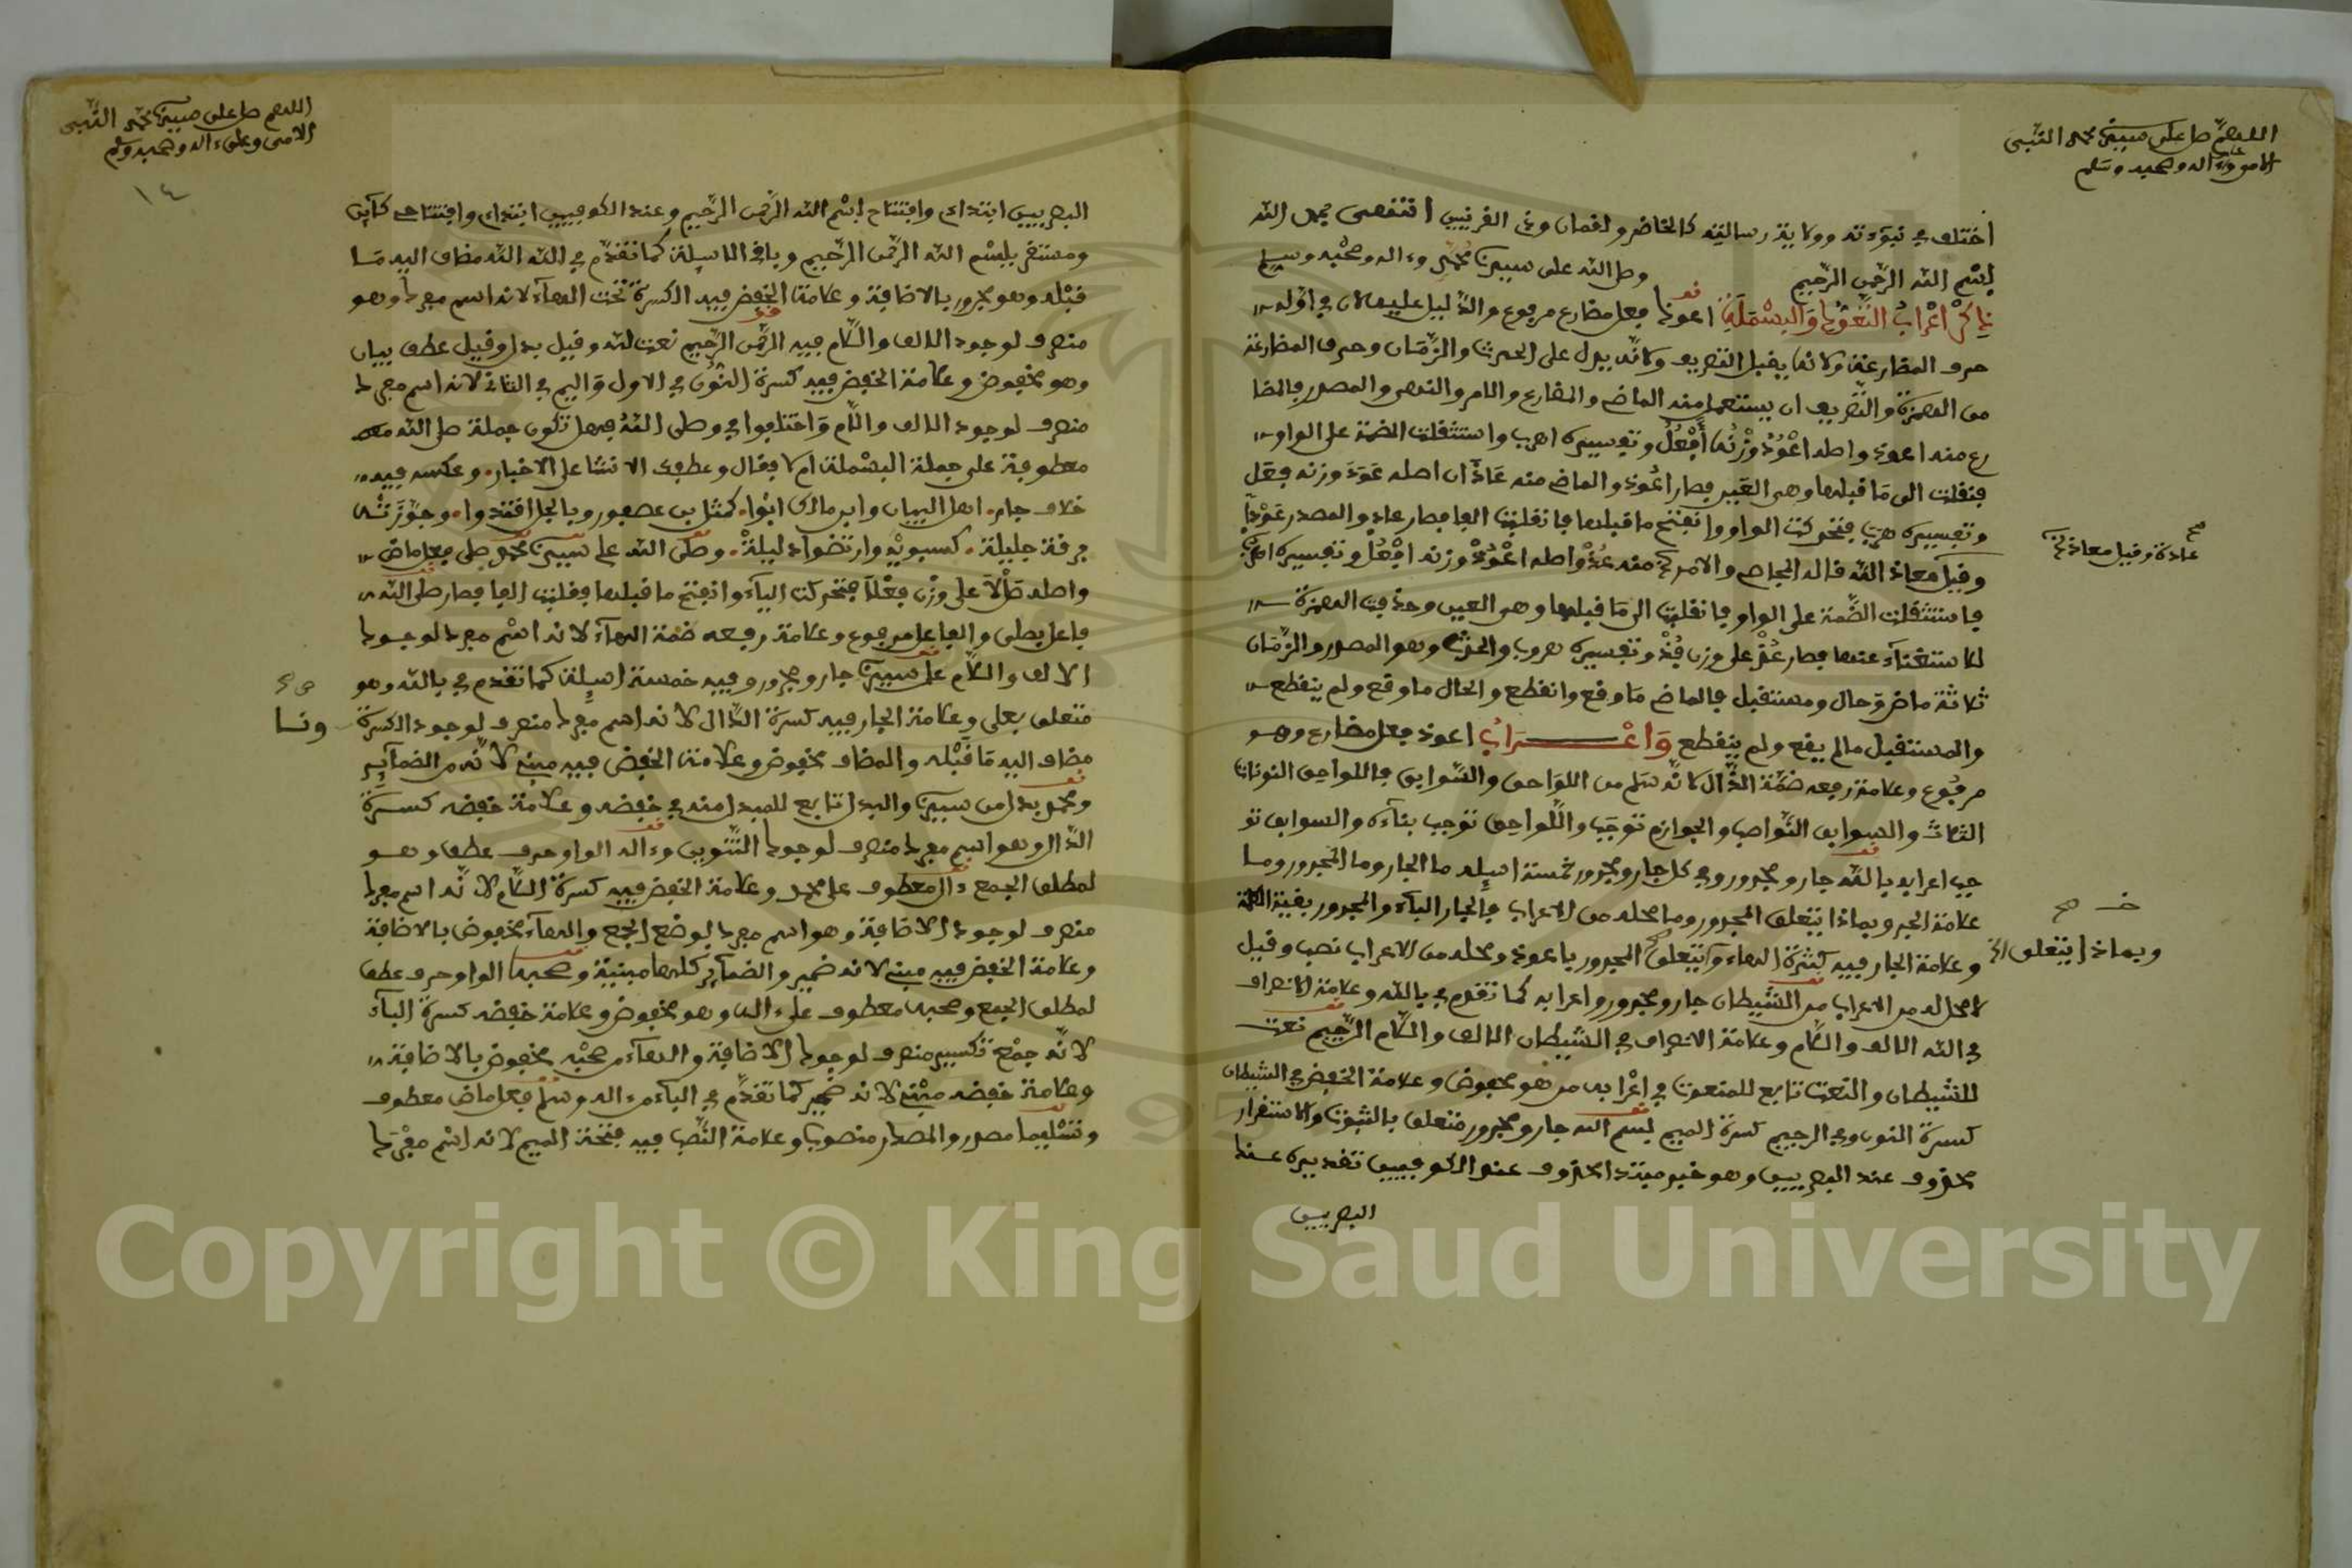 اللهم صل على سيدنا محمد النبي
الامي وعلى ءاله وصحبه وسلم
اختلف في نبوءته وولاية رسالته كالخاضر ولقمان وذي القرنين انتهى بحمد الله
بسم الله الرحمن الرحيم وصلى الله على سيدنا محمد وءاله وصحبه وسلم
ذكر اعراب التعوذ والبسملة اعوذ فعل مضارع مرفوع والدليل عليه لان في اوله
حرف المضارعة ولانه يقبل التصريف ولانه يدل على الحدث والزمان وحرف المضارعة
من الهمزة والتصريف ان يستعمل منه الماضي والمضارع والامر والنهي والمصدر فالمضا
رع منه اعوذ واصله اعوذ وزنه أفعل وتفسيره اهرب واستثقلت الضمة على الواو
فنقلت الى ما قبلها وهي العين فصار اعوذ والماضي منه عاذ ان اصله عوذ وزنه فعل
وتفسيره هرب فتحركت الواو وانفتح ما قبلها فانقلبت الفا فصار عاذ والمصدر عوذا
عاذة وقيل معاذة صح
وقيل معاذ الله قاله الجاصي والامر منه عذ واصله اعوذ وزنه افعل وتفسيره اهرب
فاستثقلت الضمة على الواو فانقلبت الى ما قبلها وهو العين وحذفت الهمزة
للاستغناء عنها فصار عذ على وزن فل وتفسيره هروب والحدث وهو المصدر والزمان
ثلاثة ماض وحال ومستقبل فالماضي ما وقع وانقطع والحال ما وقع ولم ينقطع
والمستقبل مالم يقع ولم ينقطع واعراب اعوذ فعل مضارع وهو
مرفوع وعلامة رفعه ضمة الذال لانه سلم من اللواحق والسوابق فاللواحق النونات
الثلاث والسوابق النواصب والجوازم توجب واللواحق توجب بناءه والسوابق تو
جب اعرابه بالله جار ومجرور وفي كل جار ومجرور خمسة اسيلة ما الجار وما المجرور وما
علامة الجر وبماذا يتعلق المجرور وما محله من الاعراب فالجار الباء والمجرور بقية الكلمة
وبماذا يتعلق الخ صح
وعلامة الجار فيه كسرة الهاء ويتعلق المجرور باعوذ ومحله من الاعراب نصب وقيل
لا محل له من الاعراب من الشيطان جار ومجرور واعرابه كما تقدم في بالله وعلامة الانصراف
في الله الالف واللام وعلامة الانصراف في الشيطان الالف واللام الرجيم نعت
للشيطان والنعت تابع للمنعوت في اعرابه من هو مخفوض وعلامة الخفض في الشيطان
كسرة النون وفي الرجيم كسرة الميم بسم الله جار ومجرور متعلق بالثبوت والاستقرار
محذوف عند البصريين وهو خبر مبتدا محذوف عند الكوفيين تقديره عند
البصريين
اللهم صل على سيدنا محمد النبي
الامي وعلى ءاله وصحبه وسلم
١٤
البصريين ابتداي وافتتاح بسم الله الرحمن الرحيم وعند الكوفيين ابتداي وافتتاحي كاين
ومستقر ببسم الله الرحمن الرحيم وباقي الاسيلة كما تقدم في الله الله مضاف اليه مـا
قبله وهو مجرور بالاضافة وعلامة الخفض فيه الكسرة تحت الهاء لانه اسم مفرد وهو
منصرف لوجود الالف واللام فيه الرحمن الرحيم نعت لله وقيل بدل وقيل عطف بيان
وهو مخفوض وعلامة الخفض فيه كسرة النون في الاول والميم في الثاني لانه اسم مفرد
منصرف لوجود الالف واللام واختلفوا في وصلى الله فهل تكون جملة صلى الله معه
معطوفة على جملة البسملة ام لا فقال وعطفك الانشا على الاخبار وعكسه فيه
خلاف جار اهل البيان وابن مالك ابوا كمثل بن عصفور وبالجل اقتدوا وجوزته
فرفة جليلة كسيبويه وارتضوا دليلة وصلى الله على سيدنا محمد صلى فعل ماض
واصله صلا على وزن فعلا فتحركت الياء وانفتح ما قبلها فقلبت الفا فصار صلى الله
فاعل بصلى والفاعل مرفوع وعلامة رفعه ضمة الهاء لانه اسم مفرد لوجود
الالف واللام على سيدنا جار ومجرور وفيه خمسة اسيلة كما تقدم في بالله وهو
متعلق بصلى وعلامة الجار فيه كسرة الدال لانه اسم مفرد منصرف لوجود الكسرة
ونـا صح
مضاف اليه ما قبله والمضاف مخفوض وعلامة الخفض فيه مبني لانه من الضماير
ومحمد بدل من سيدنا والبدل تابع للمبدل منه في خفضه وعلامة خفضه كسرة
الدال وهو اسم مفرد منصرف لوجود التنوين وءاله الواو حرف عطف وهـو
لمطلق الجمع ءال معطوف على محمد وعلامة الخفض فيه كسرة اللام لانه اسم مفرد
منصرف لوجود الاضافة وهو اسم مفرد لوضع الجمع والهاء مخفوض بالاضافة
وعلامة الخفض فيه مبني لانه ضمير والضماير كلها مبنية وصحبه الواو حرف عطف
لمطلق الجمع وصحبه معطوف على ءاله وهو مخفوض وعلامة خفضه كسرة الباء
لانه جمع تكسير منصرف لوجود الاضافة والهاء من صحبه مخفوض بالاضافة
وعلامة خفضه مبني لانه ضمير كما تقدم في الهاء من ءاله وسلم فعل ماض معطوف
وتسليما مصدر والمصدر منصوب وعلامة النصب فيه فتحة الميم لانه اسم مفرد
Copyright © King Saud University